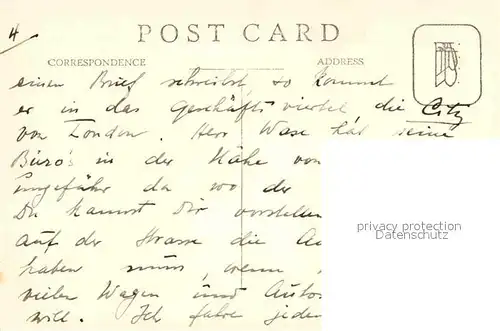 4
POST CARD
CORRESPONDENCE ADDRESS
einen Brief schreibst, so kommt
er in das Geschäftsviertel die City
von London. Herr Wase hat seine
Büro's in der Nähe von
ungefähr da wo der
Du kannst Dir vorstellen
auf der Strasse die
haben muss, wenn
vielen Wagen und Autos
will. Ich fahre jeden
privacy protection
Datenschutz